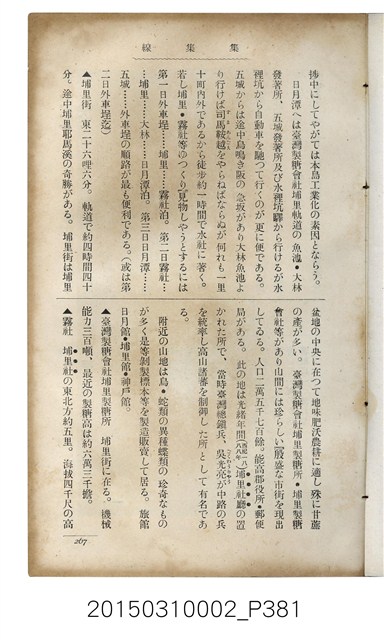 線集集
捗中にしてやがては本島工業化の素因とならう。
日月潭へは臺灣製糖會社埔里軌道の魚池・大林
發著所、五城發著所及び水裡坑驛から行けるが水
裡坑から自動車を驅つて行くのが更に便である。
五城からは途中鳥鳴き阪の急坂があり大林魚池よ
り行けば司馬鞍越をやらねばならぬが何れも一里
十町內外であるから徒步約一時間で水社に著く。
若し埔里・霧社等ゆつくり見物しやうとするには
第一日外車埕……埔里……霧社泊。第二日霧社…
…埔里……大林……日月潭泊。第三日日月潭……
五城……外車埕の順路が最も便利である。(或は第
二日外車埕迄)
▲埔里街 東二十六哩六分。軌道で約四時間四十
分。途中埔里耶馬溪の奇勝がある。埔里街は埔里
盆地の中央に在つて地味肥沃農耕に適し殊に甘蔗
の產が多い。臺灣製糖會社埔里製糖所・埔里製糖
會社等があり山間には珍らしい殷盛な市街を現出
してゐる。人口二萬五千七百餘。能高郡役所・郵便
局がある。此の地は光緒年間埔里社廳の置
かれた所で、當時臺灣總鎭兵、吳光亮が中路の兵
を統率し高山諸蕃を制御した所として有名であ
る。
附近の山地は鳥・蛇類の異種蝶類の珍奇なもの
が多く是等剝製標本等を製造販賣して居る。旅館
日月館・埔里館・神戶館。
▲臺灣製糖會社埔里製糖所 埔里街に在る。機械
能力三百噸、最近の製糖高は約六萬三千擔。
▲霧社 埔里社の東北方約五里。海拔四千尺の高
267
20150310002_P381